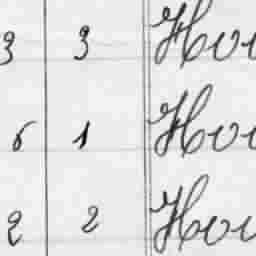 3 3 Hou
6 1 Hou
2 2 Hou